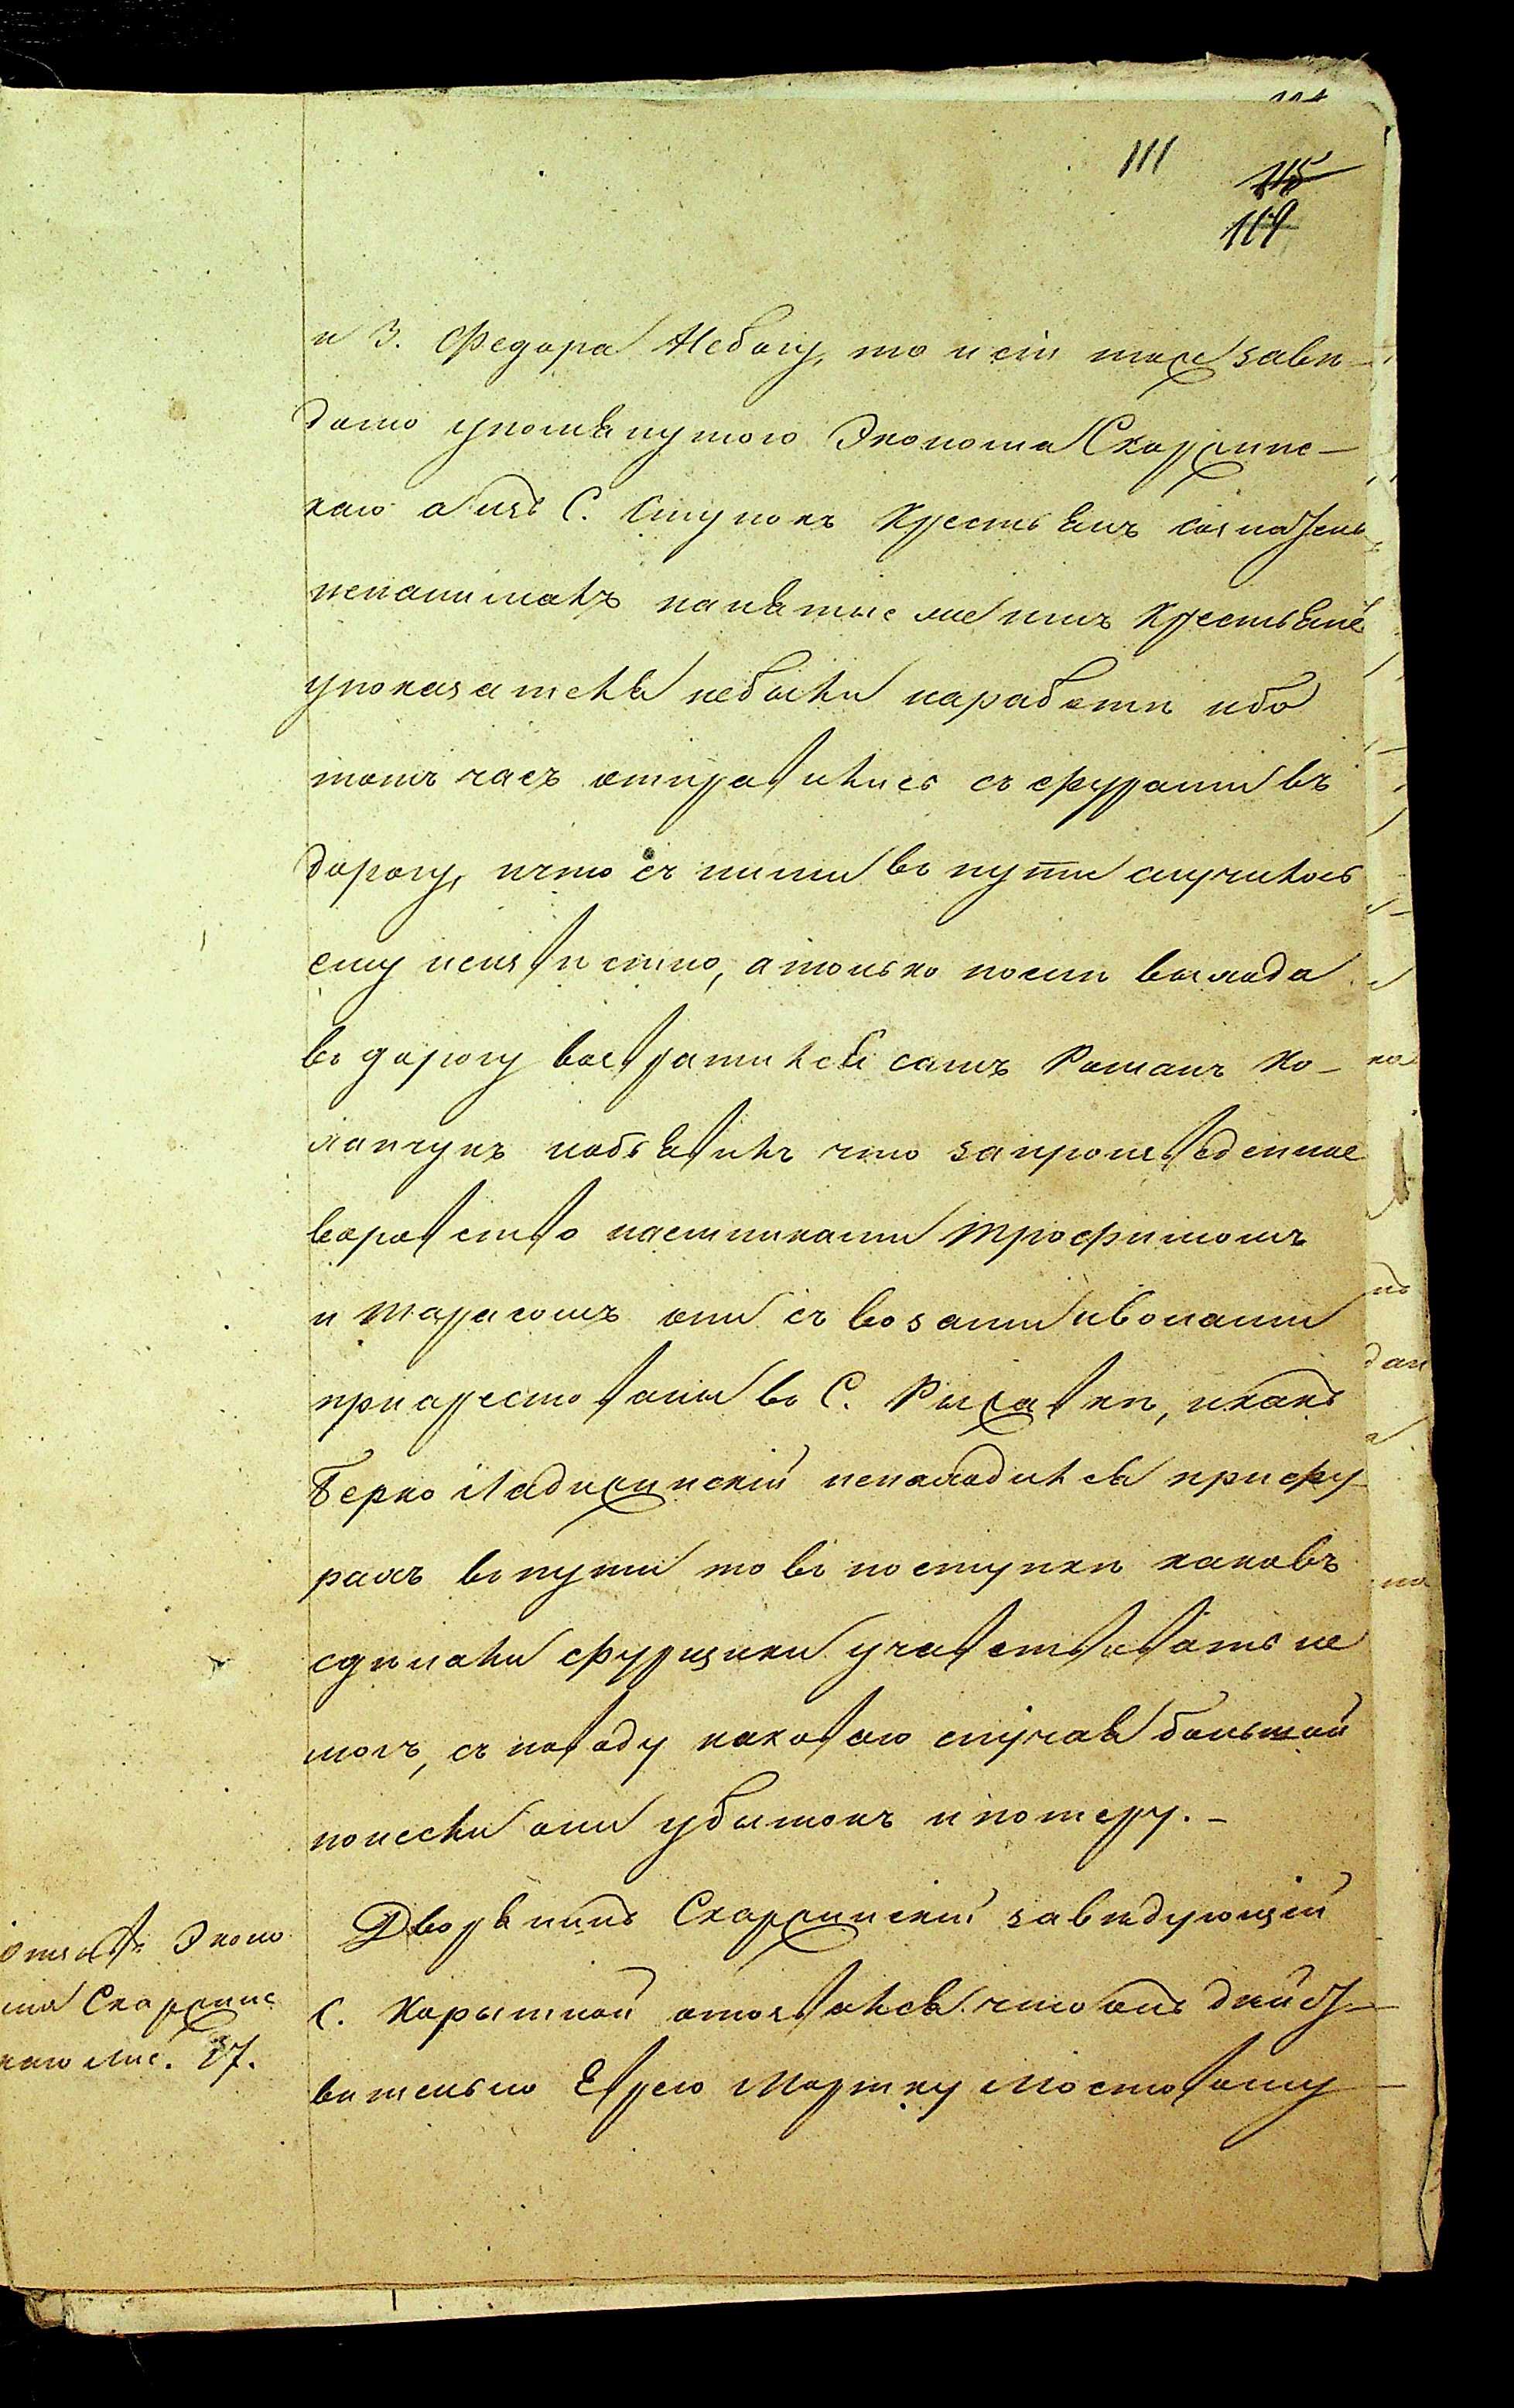 111
115
119
и 3. Федора Небогу, то и сіи тоже завѣ-
домо упомянутого Эконома Скаржинс-
каго а изъ С. Ступокъ Крестьянъ самъ
ненанималъ нанятые же имъ Крестьяне
упоказателя небыли наработѣ ибо
тотъ часъ отправились съ фурами въ
дорогу, ичто съ ними въ пути случилось
ему неизвѣстно, атолько послѣ выѣзда
въ дорогу возвратился самъ Романъ Ко-
лапчукъ иобъявилъ что запроизведенное
воровство пастниками Трофимомъ
и Тарасомъ они съ возами иволами
приарестованы въ С. Рыжавкѣ, икакъ
Берко Ладыжинскій ненаходился прифу-
рахъ въ пути то въ поступкѣ каковъ
сдѣлали фурщики участвовать не
могъ, съ поводу каковаго случая большой
понесли они убытокъ ипотерю. -
Дворянинъ Скаржинскій завѣдующій
С. Корытной отозвался что онъ дѣйст-
вительно Еврею Мортку Мостовому
Отзывъ Эконо
ма Скаржинс
каго лис. 37.